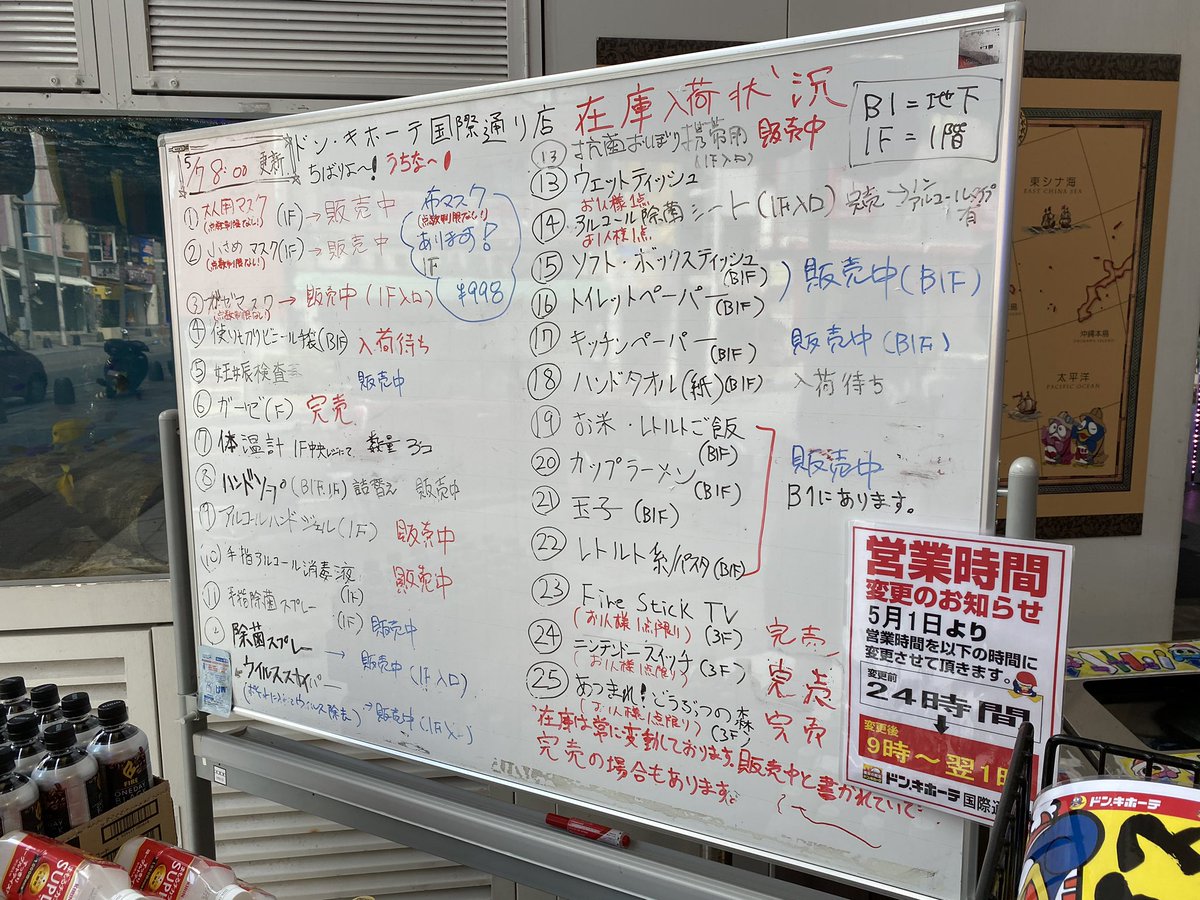 ドン・キホーテ国際通り店 在庫入荷状況
B1=地下
1F=1階
5/7 8:00 更新
ちばりよ〜!うちな〜!
① 大人用マスク(1F)→販売中
(点数制限なし!)
② 小さめマスク(1F)→販売中
(点数制限なし!)
布マスク
(点数制限なし!)
あります!
1F
¥998
③ ガーゼマスク→販売中(1F入口)
(点数制限なし!)
④ 使い切りビニール手袋(B1F)入荷待ち
⑤ 妊娠検査 販売中
⑥ ガーゼ(1F)完売
⑦ 体温計 1F中央レジにて 数量
⑧ ハンドソープ(B1F.1F)詰替え 販売中
⑨ アルコールハンドジェル(1F) 販売中
⑩ 手指アルコール消毒液 販売中
(1F)
⑪ 手指除菌スプレー
(1F)販売中
除菌スプレー→販売中(1F入口)
→販売中(1F入口)
⑬ 抗菌おしぼり携帯用 販売中
(1F入口)
⑬ ウェットティッシュ
お1人様1点
⑭ アルコール除菌シート(1F入口)完売→ノンアルコールタイプ有
お1人様1点
⑮ ソフト・ボックスティッシュ
(B1F)
⑯ トイレットペーパー(B1F)
販売中(B1F)
⑰ キッチンペーパー(B1F) 販売中(B1F)
⑱ ハンドタオル(紙)(B1F) 入荷待ち
⑲ お米・レトルトご飯
(B1F)
⑳ カップラーメン
(B1F)
㉑ 玉子(B1F)
㉒ レトルト系/パスタ(B1F)
販売中
B1にあります。
㉓ Fire Stick TV
(お1人様1点限り)(3F) 完売
㉔ ニンテンドースイッチ
(お1人様1点限り)(3F) 完売
㉕ あつまれ!どうぶつの森
(お1人様1点限り)(3F) 完売
在庫は常に変動しております。販売中と書かれていて
完売の場合もあります。
営業時間
変更のお知らせ
5月1日より
営業時間を以下の時間に
変更させて頂きます。
変更前
24時間
変更後
9時〜翌1
ドン.キホーテ 国際
東シナ海
EAST CHINA SEA
沖縄本島
太平洋
PACIFIC OCEAN
ドン.キホーテ